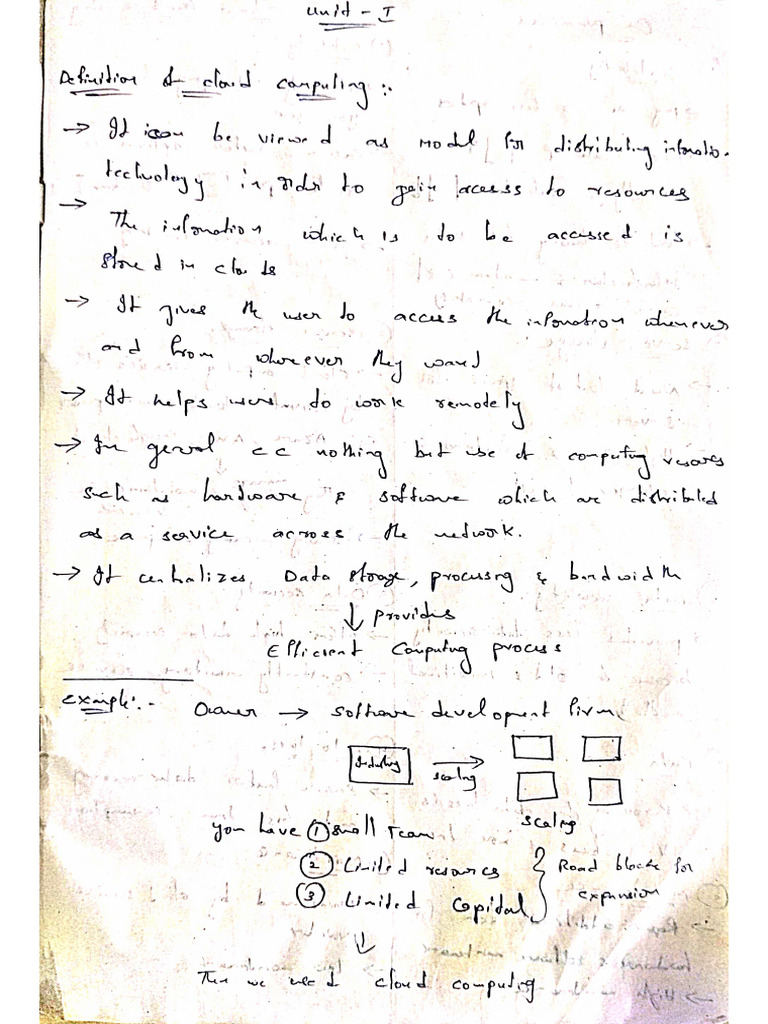 Unit - I
Definition of cloud computing :-
→ It can be viewed as model for distributing infomation
technology in order to gain access to resources
→ The infomation which is to be accessed is
stored in clouds
→ It gives the user to access the infomation whenever
and from whereever they want
→ It helps users to work remotely
→ In genral c c nothing but use of computing resources
such as hardware & software which are distributed
as a service across the network.
→ It centralizes Data storage, processing & bandwidth
↓ provides
Efficient Computing process
Example :- Owner → software development firm
Industry → scaling
scaling
you have ① small team
② Limited resources } Road blocks for
③ Limited Capital } expansion
↓
Then we need cloud computing